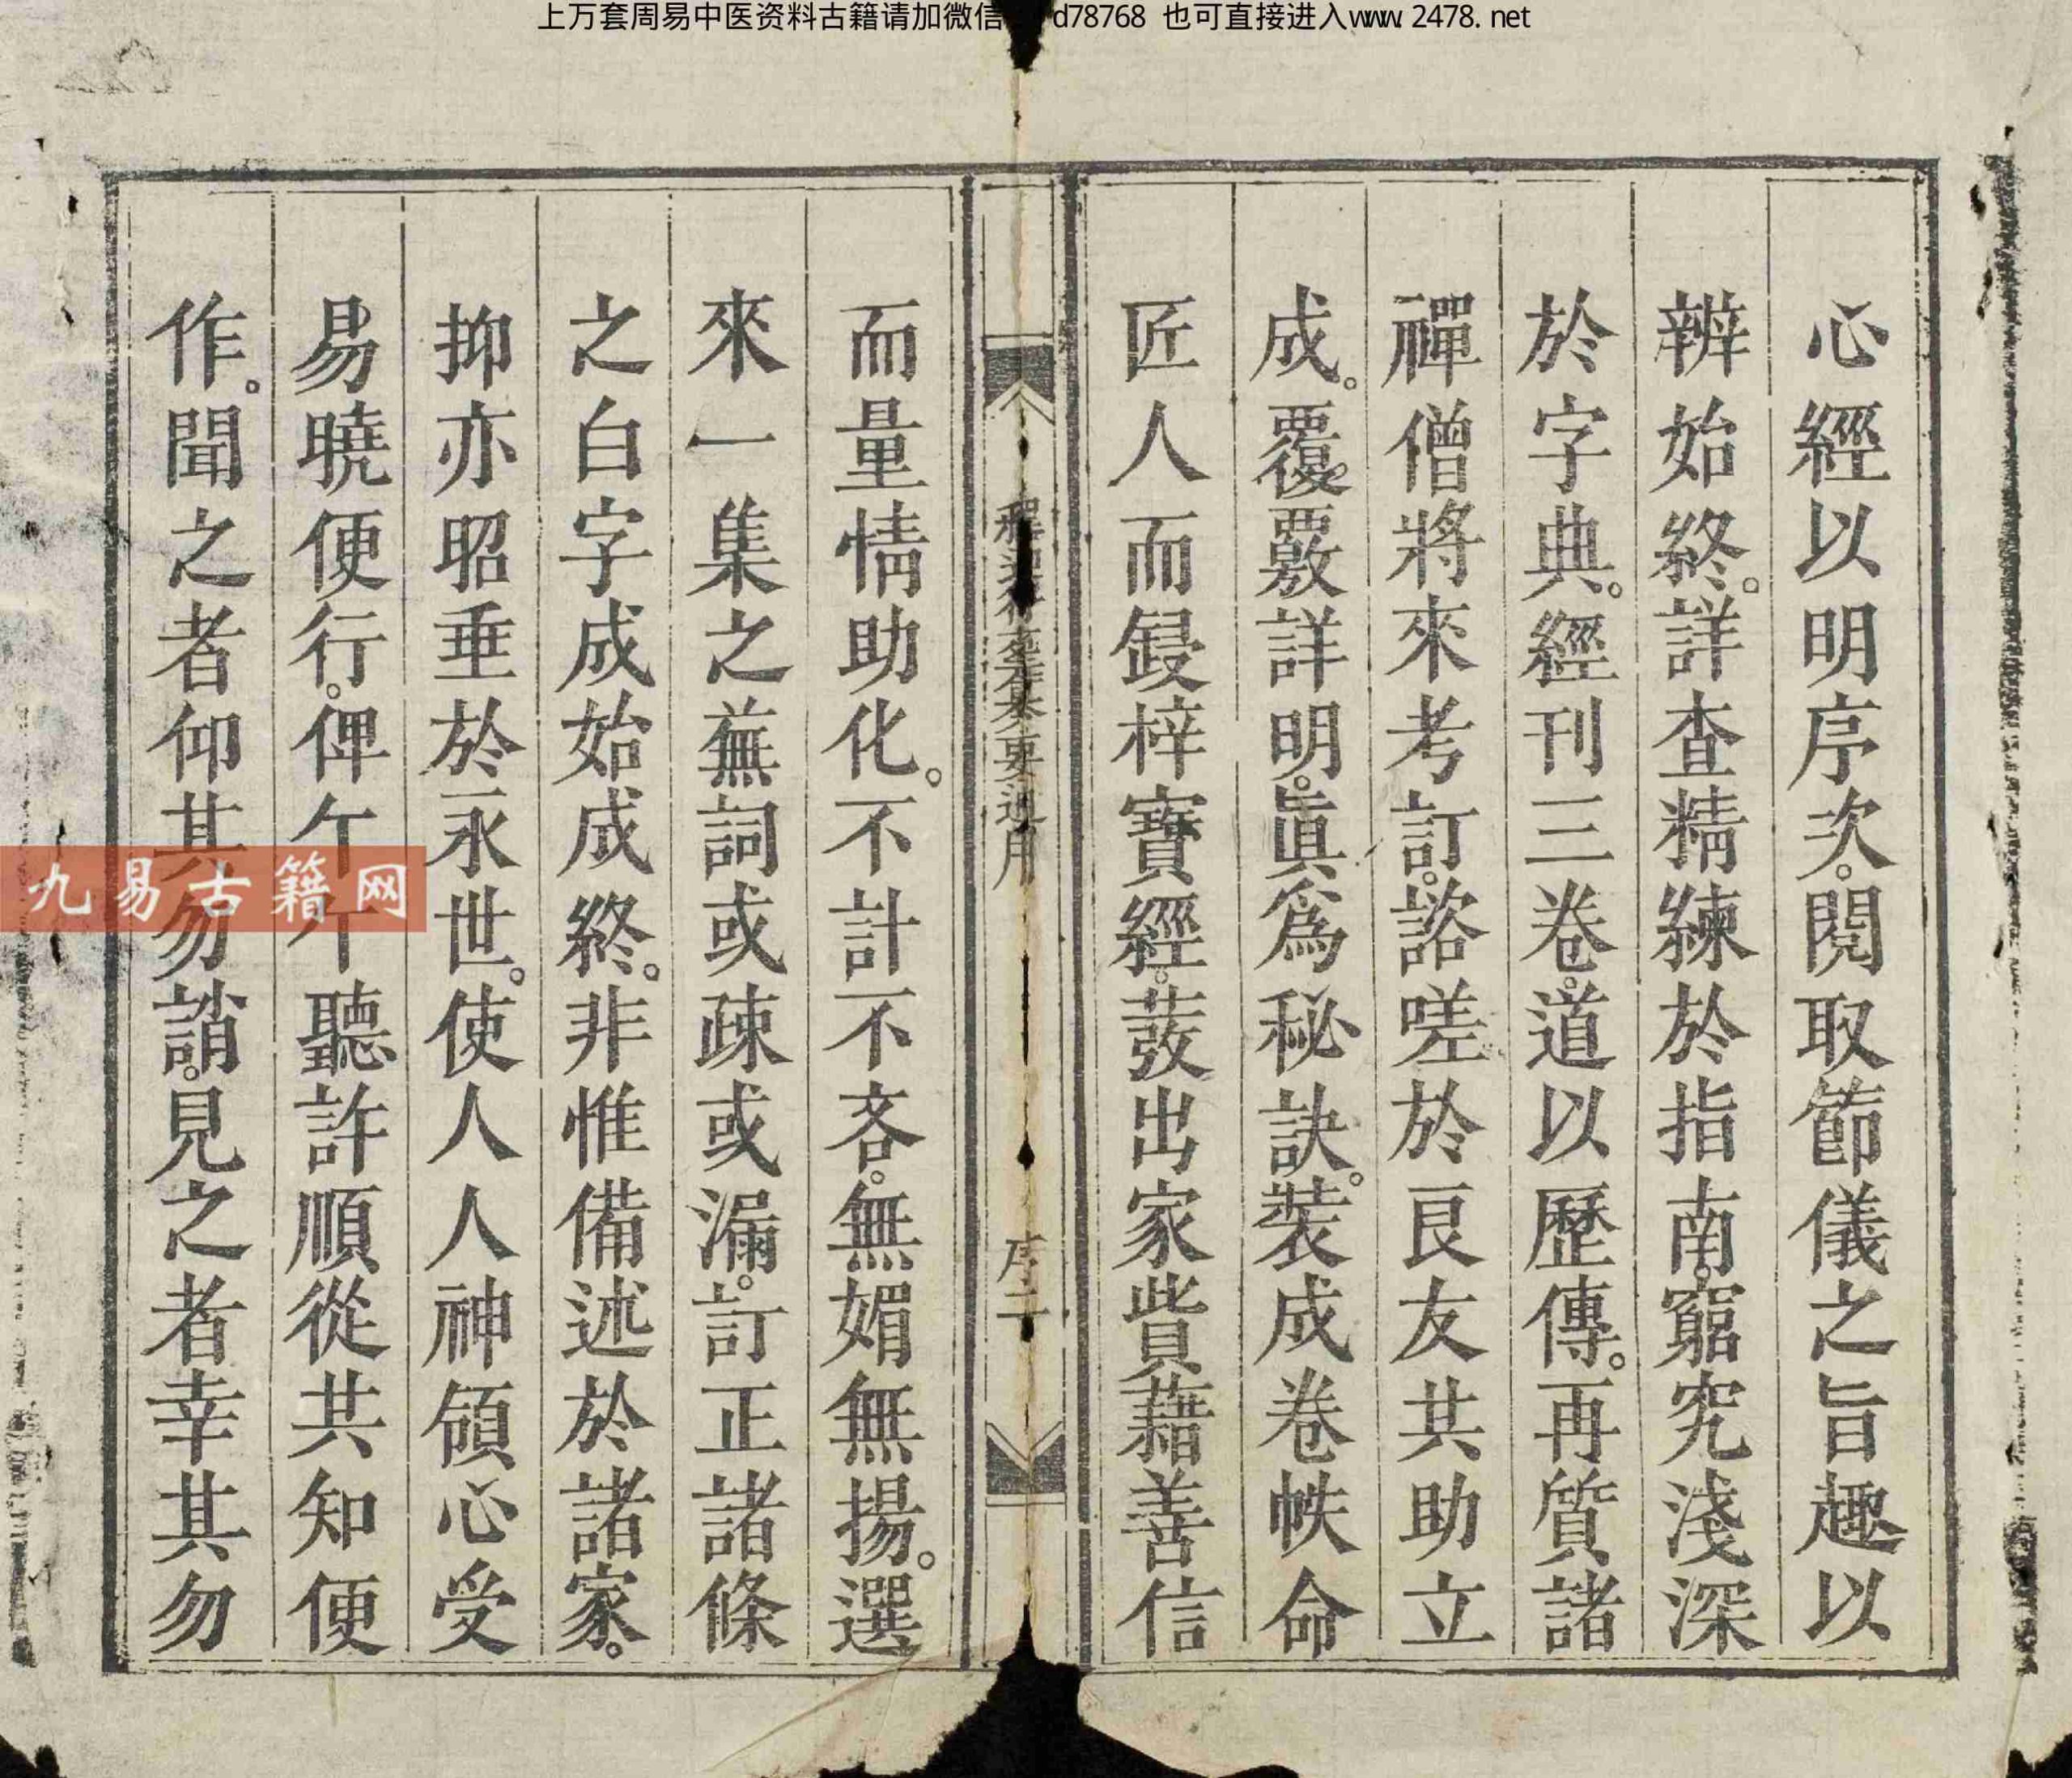 上万套周易中医资料古籍请加微信 d78768 也可直接进入www.2478.net
心經以明序次。閱取節儀之旨趣以
辨始終。詳查精練於指南。窮究淺深
於字典。經刊三卷。道以歷傳。再質諸
禪僧將來考訂。諮嗟於良友共助立
成。覆覈詳明。眞爲秘訣。裝成卷帙命
匠人而鋟梓寶經。蕟出家貲藉善信
序二
而量情助化。不計不吝。無媚無揚。選
來一集之蕪詞或疎或漏。訂正諸條
之白字成始成終。非惟備述於諸家。
抑亦昭垂於永世。使人人神領心受
易曉便行。俾午午聽許順從共知便
作。聞之者仰其勿誚。見之者幸其勿
九易古籍网